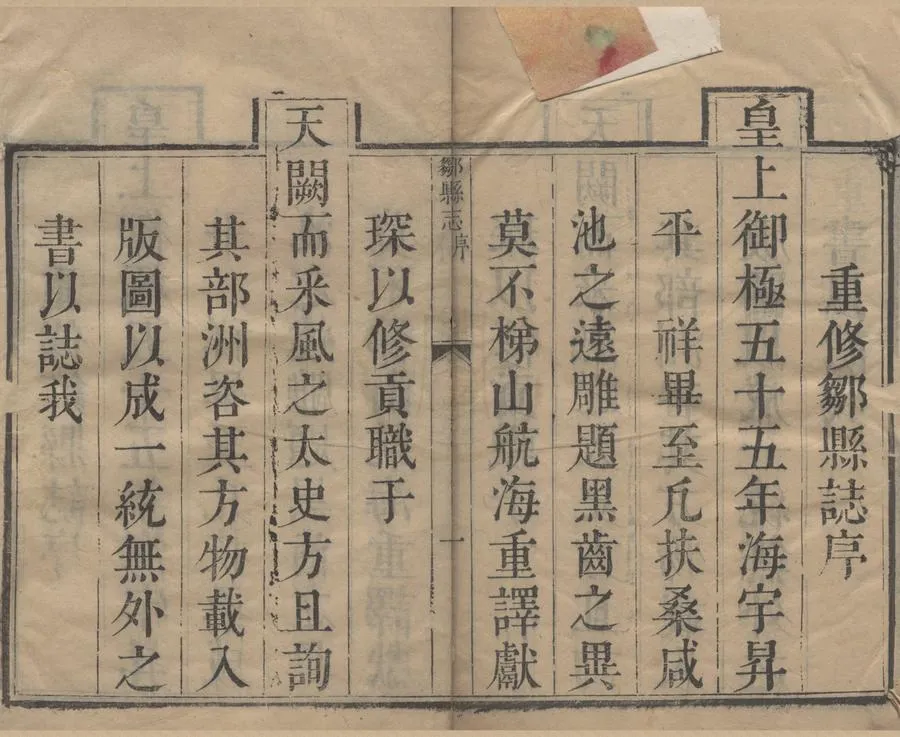 重修鄒縣誌序
皇上御極五十五年海宇昇
平祥畢至凡扶桑咸
池之遠雕題黑齒之異
莫不梯山航海重譯獻
鄒縣志 序 一
琛以修貢職于
天闕而采風之太史方且詢
其部洲咨其方物載入
版圖以成一統無外之
書以誌我